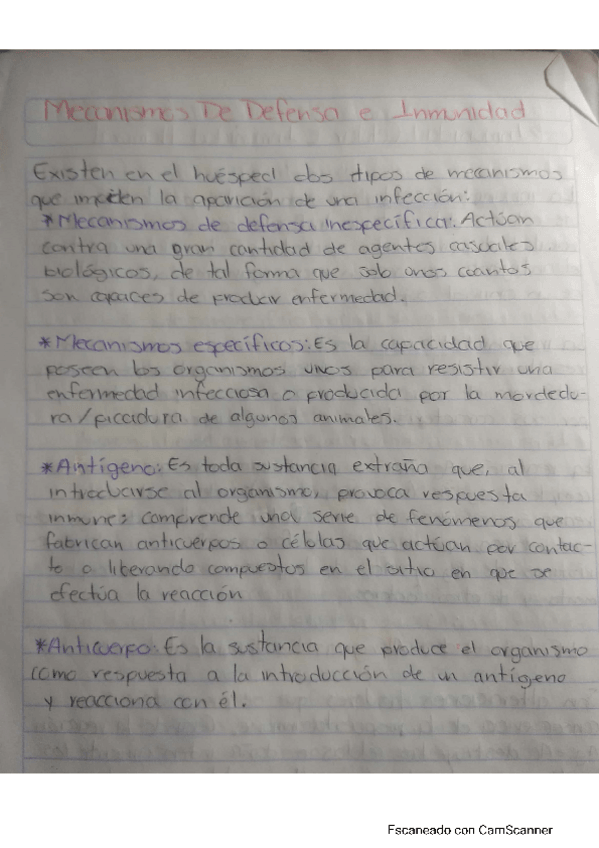 Mecanismos De Defensa e Inmunidad
Existen en el huésped dos tipos de mecanismos
que impiden la aparición de una infección:
*Mecanismos de defensa inespecífica: Actúan
contra una gran cantidad de agentes casuales
biológicos, de tal forma que solo unos cuantos
son capaces de producir enfermedad.
*Mecanismos específicos: Es la capacidad que
poseen los organismos vivos para resistir una
enfermedad infecciosa o producida por la mordedu-
ra/picadura de algunos animales.
*Antígeno: Es toda sustancia extraña que, al
introducirse al organismo, provoca respuesta
inmune; comprende una serie de fenómenos que
fabrican anticuerpos o células que actúan por contac-
to o liberando compuestos en el sitio en que se
efectúa la reacción
*Anticuerpo: Es la sustancia que produce el organismo
como respuesta a la introducción de un antígeno
y reacciona con él.
Escaneado con CamScanner